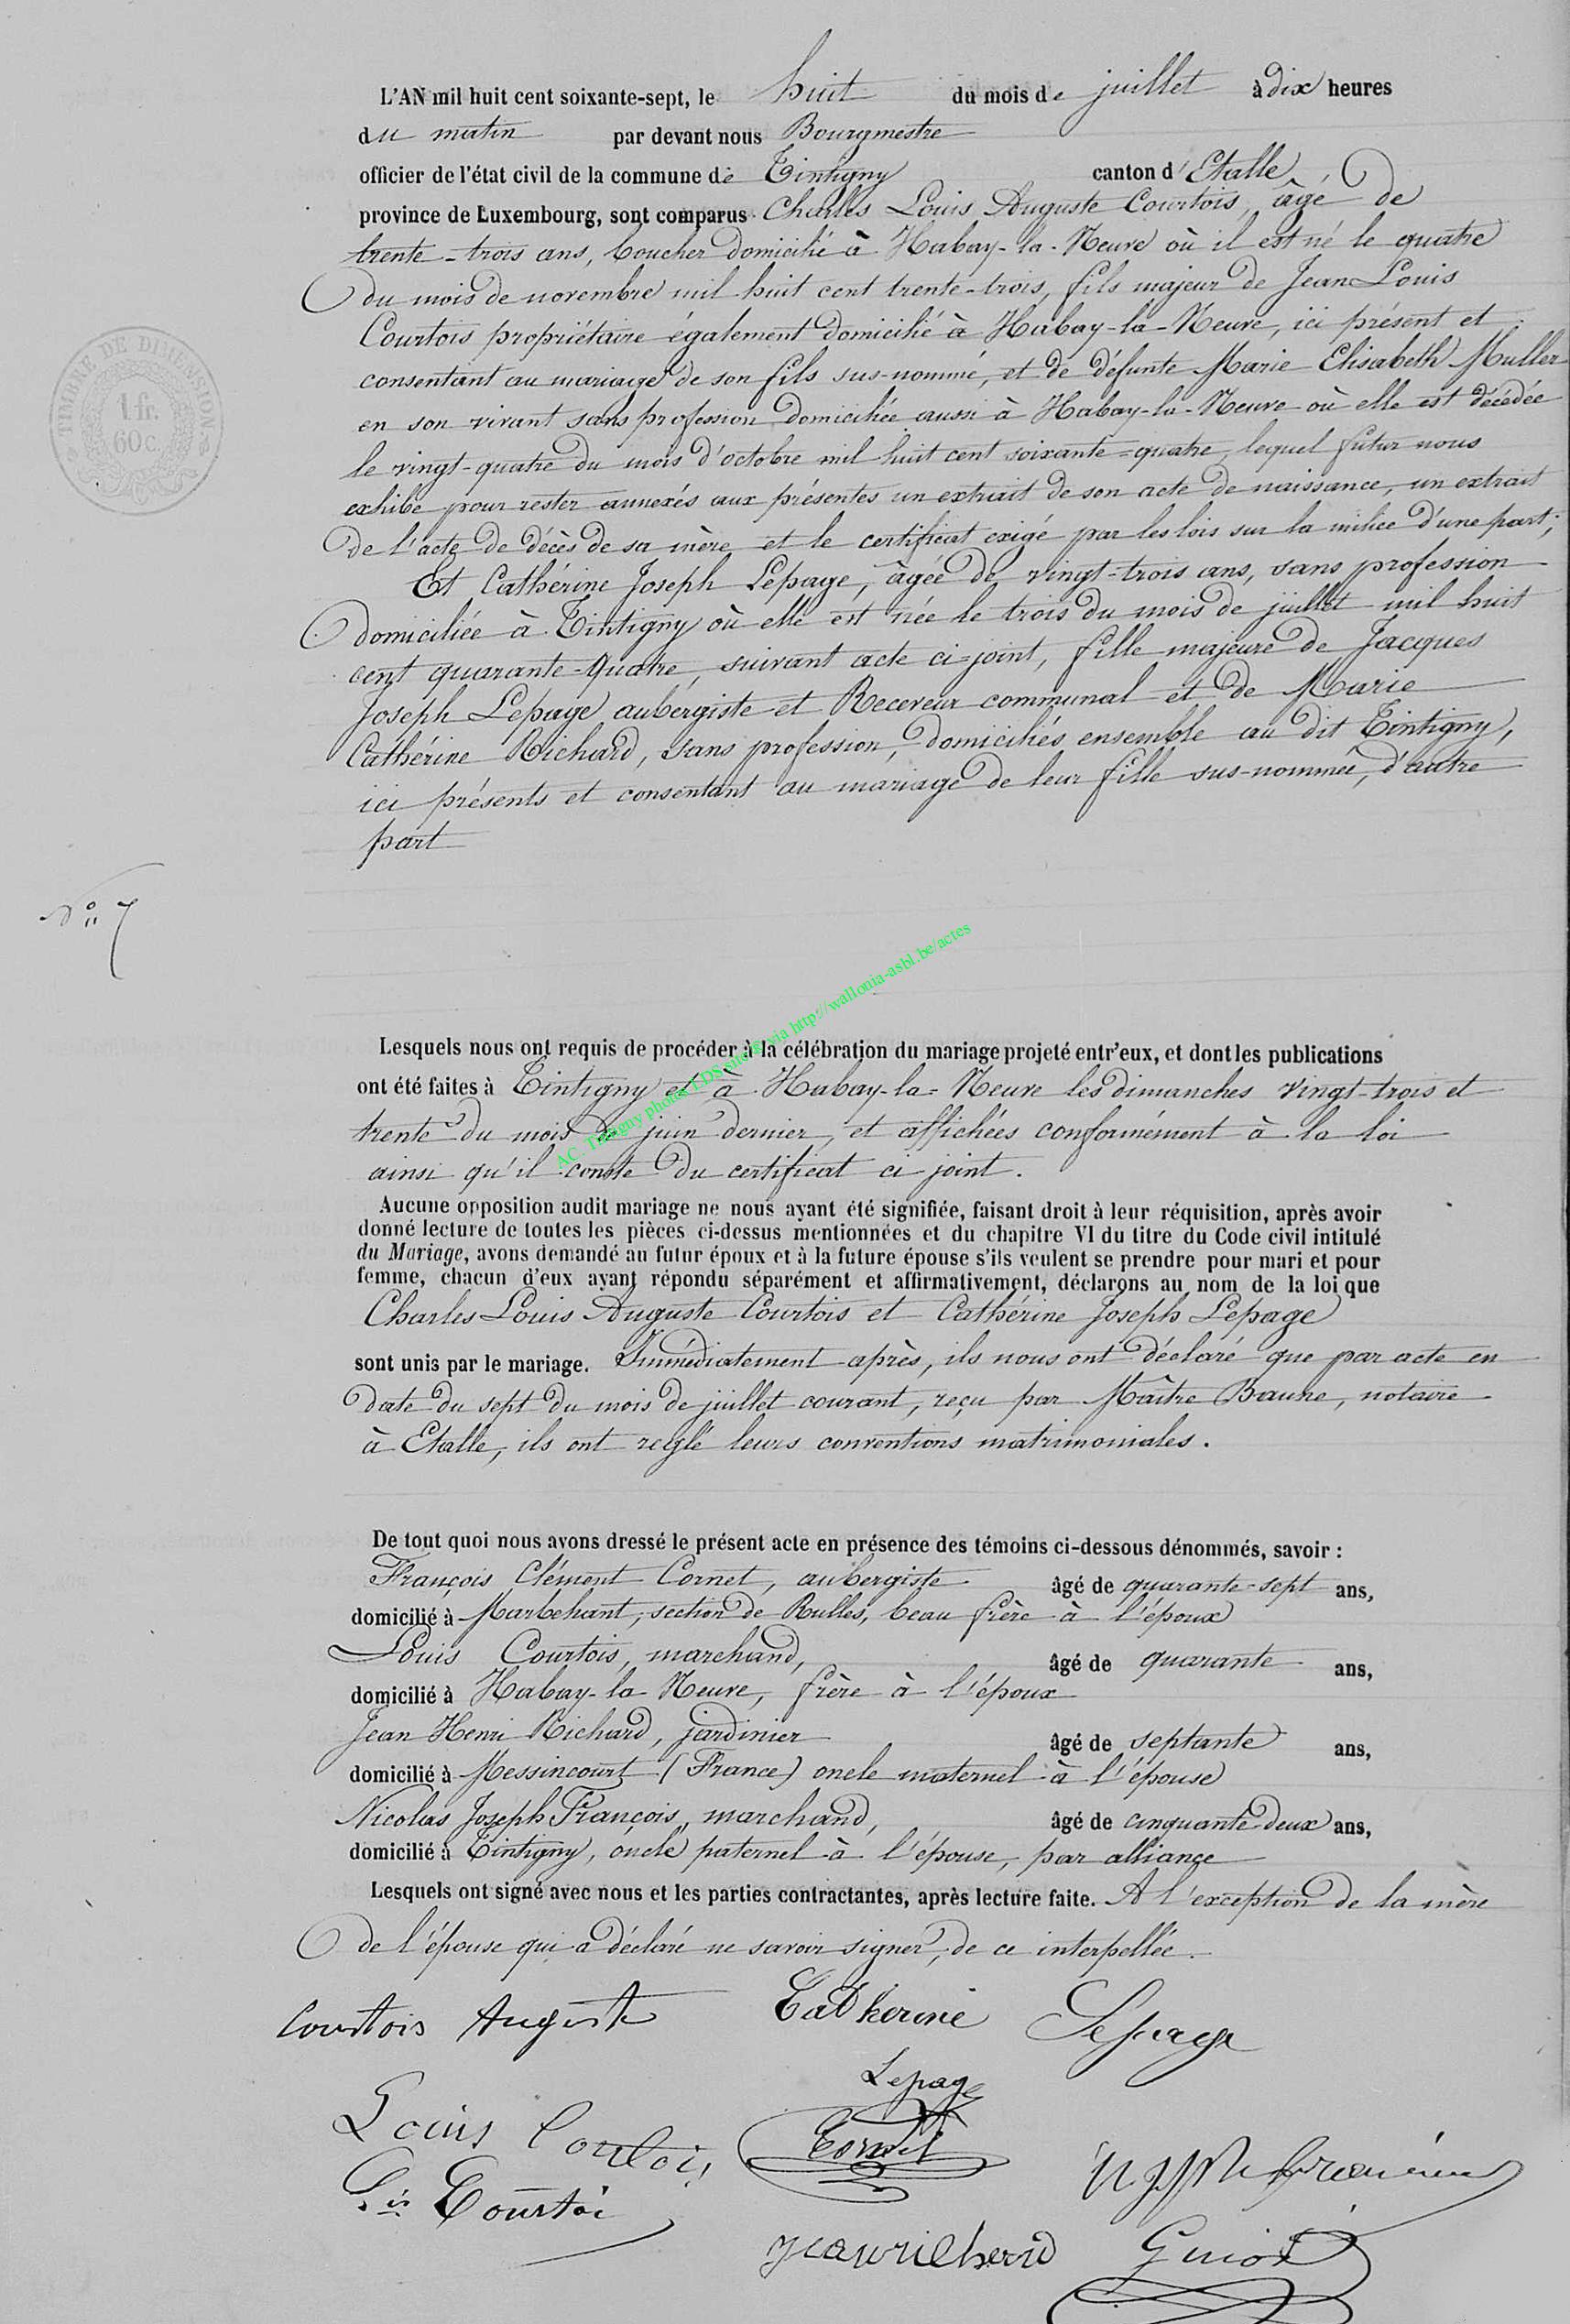 L'AN mil huit cent soixante-sept, le huit du mois de juillet à dix heures
du matin par devant nous Bourgmestre
officier de l'état civil de la commune de Tintigny canton d'Etalle
province de Luxembourg, sont comparus Charles Louis Auguste Courtois, âgé de
trente-trois ans, boucher domicilié à Habay-la-Neuve où il est né le quatre
du mois de novembre mil huit cent trente-trois, fils majeur de Jean Louis
Courtois propriétaire également domicilié à Habay-la-Neuve, ici présent et
consentant au mariage de son fils sus-nommé, et de défunte Marie Elisabeth Muller
en son vivant sans profession domiciliée aussi à Habay-la-Neuve où elle est décédée
le vingt-quatre du mois d'octobre mil huit cent soixante-quatre, lequel futur nous
exhibe pour rester annexés aux présentes un extrait de son acte de naissance, un extrait
de l'acte de décès de sa mère et le certificat exigé par les lois sur la milice d'une part;
Et Cathérine Joseph Lepage, âgée de vingt-trois ans, sans profession
domiciliée à Tintigny où elle est née le trois du mois de juillet mil huit
cent quarante-quatre, suivant acte ci-joint, fille majeure de Jacques
Joseph Lepage aubergiste et Receveur communal et de Marie
Cathérine Richard, sans profession, domiciliés ensemble au dit Tintigny,
ici présents et consentant au mariage de leur fille sus-nommée, d'autre
part
TIMBRE DE DIMENSION
1 fr.
60 c.
N° 7
AC. Tintigny photos LDS site @ via http://wallonia-asbl.be/actes
Lesquels nous ont requis de procéder à la célébration du mariage projeté entr'eux, et dont les publications
ont été faites à Tintigny et à Habay-la-Neuve les dimanches vingt-trois et
trente du mois de juin dernier, et affichées conformément à la loi
ainsi qu'il conste du certificat ci joint.
Aucune opposition audit mariage ne nous ayant été signifiée, faisant droit à leur réquisition, après avoir
donné lecture de toutes les pièces ci-dessus mentionnées et du chapitre VI du titre du Code civil intitulé
du Mariage, avons demandé au futur époux et à la future épouse s'ils veulent se prendre pour mari et pour
femme, chacun d'eux ayant répondu séparément et affirmativement, déclarons au nom de la loi que
Charles Louis Auguste Courtois et Cathérine Joseph Lepage
sont unis par le mariage. Immédiatement après, ils nous ont déclaré que par acte en
date du sept du mois de juillet courant, reçu par Maître Baune, notaire
à Etalle, ils ont reglé leurs conventions matrimoniales.
De tout quoi nous avons dressé le présent acte en présence des témoins ci-dessous dénommés, savoir :
François Clément Cornet, aubergiste âgé de quarante-sept ans,
domicilié à Marbehant, section de Rulles, beau frère à l'époux
Louis Courtois, marchand, âgé de quarante ans,
domicilié à Habay-la-Neuve, frère à l'époux
Jean Henri Richard, jardinier âgé de septante ans,
domicilié à Messincourt (France) oncle maternel à l'épouse
Nicolas Joseph François, marchand, âgé de cinquante deux ans,
domicilié à Tintigny, oncle paternel à l'épouse, par alliance
Lesquels ont signé avec nous et les parties contractantes, après lecture faite. A l'exception de la mère
de l'épouse qui a déclaré ne savoir signer, de ce interpellée.
Courtois Auguste Catherine Lepage
Lepage
Louis Courtois Cornet
Courtoi
Guiot